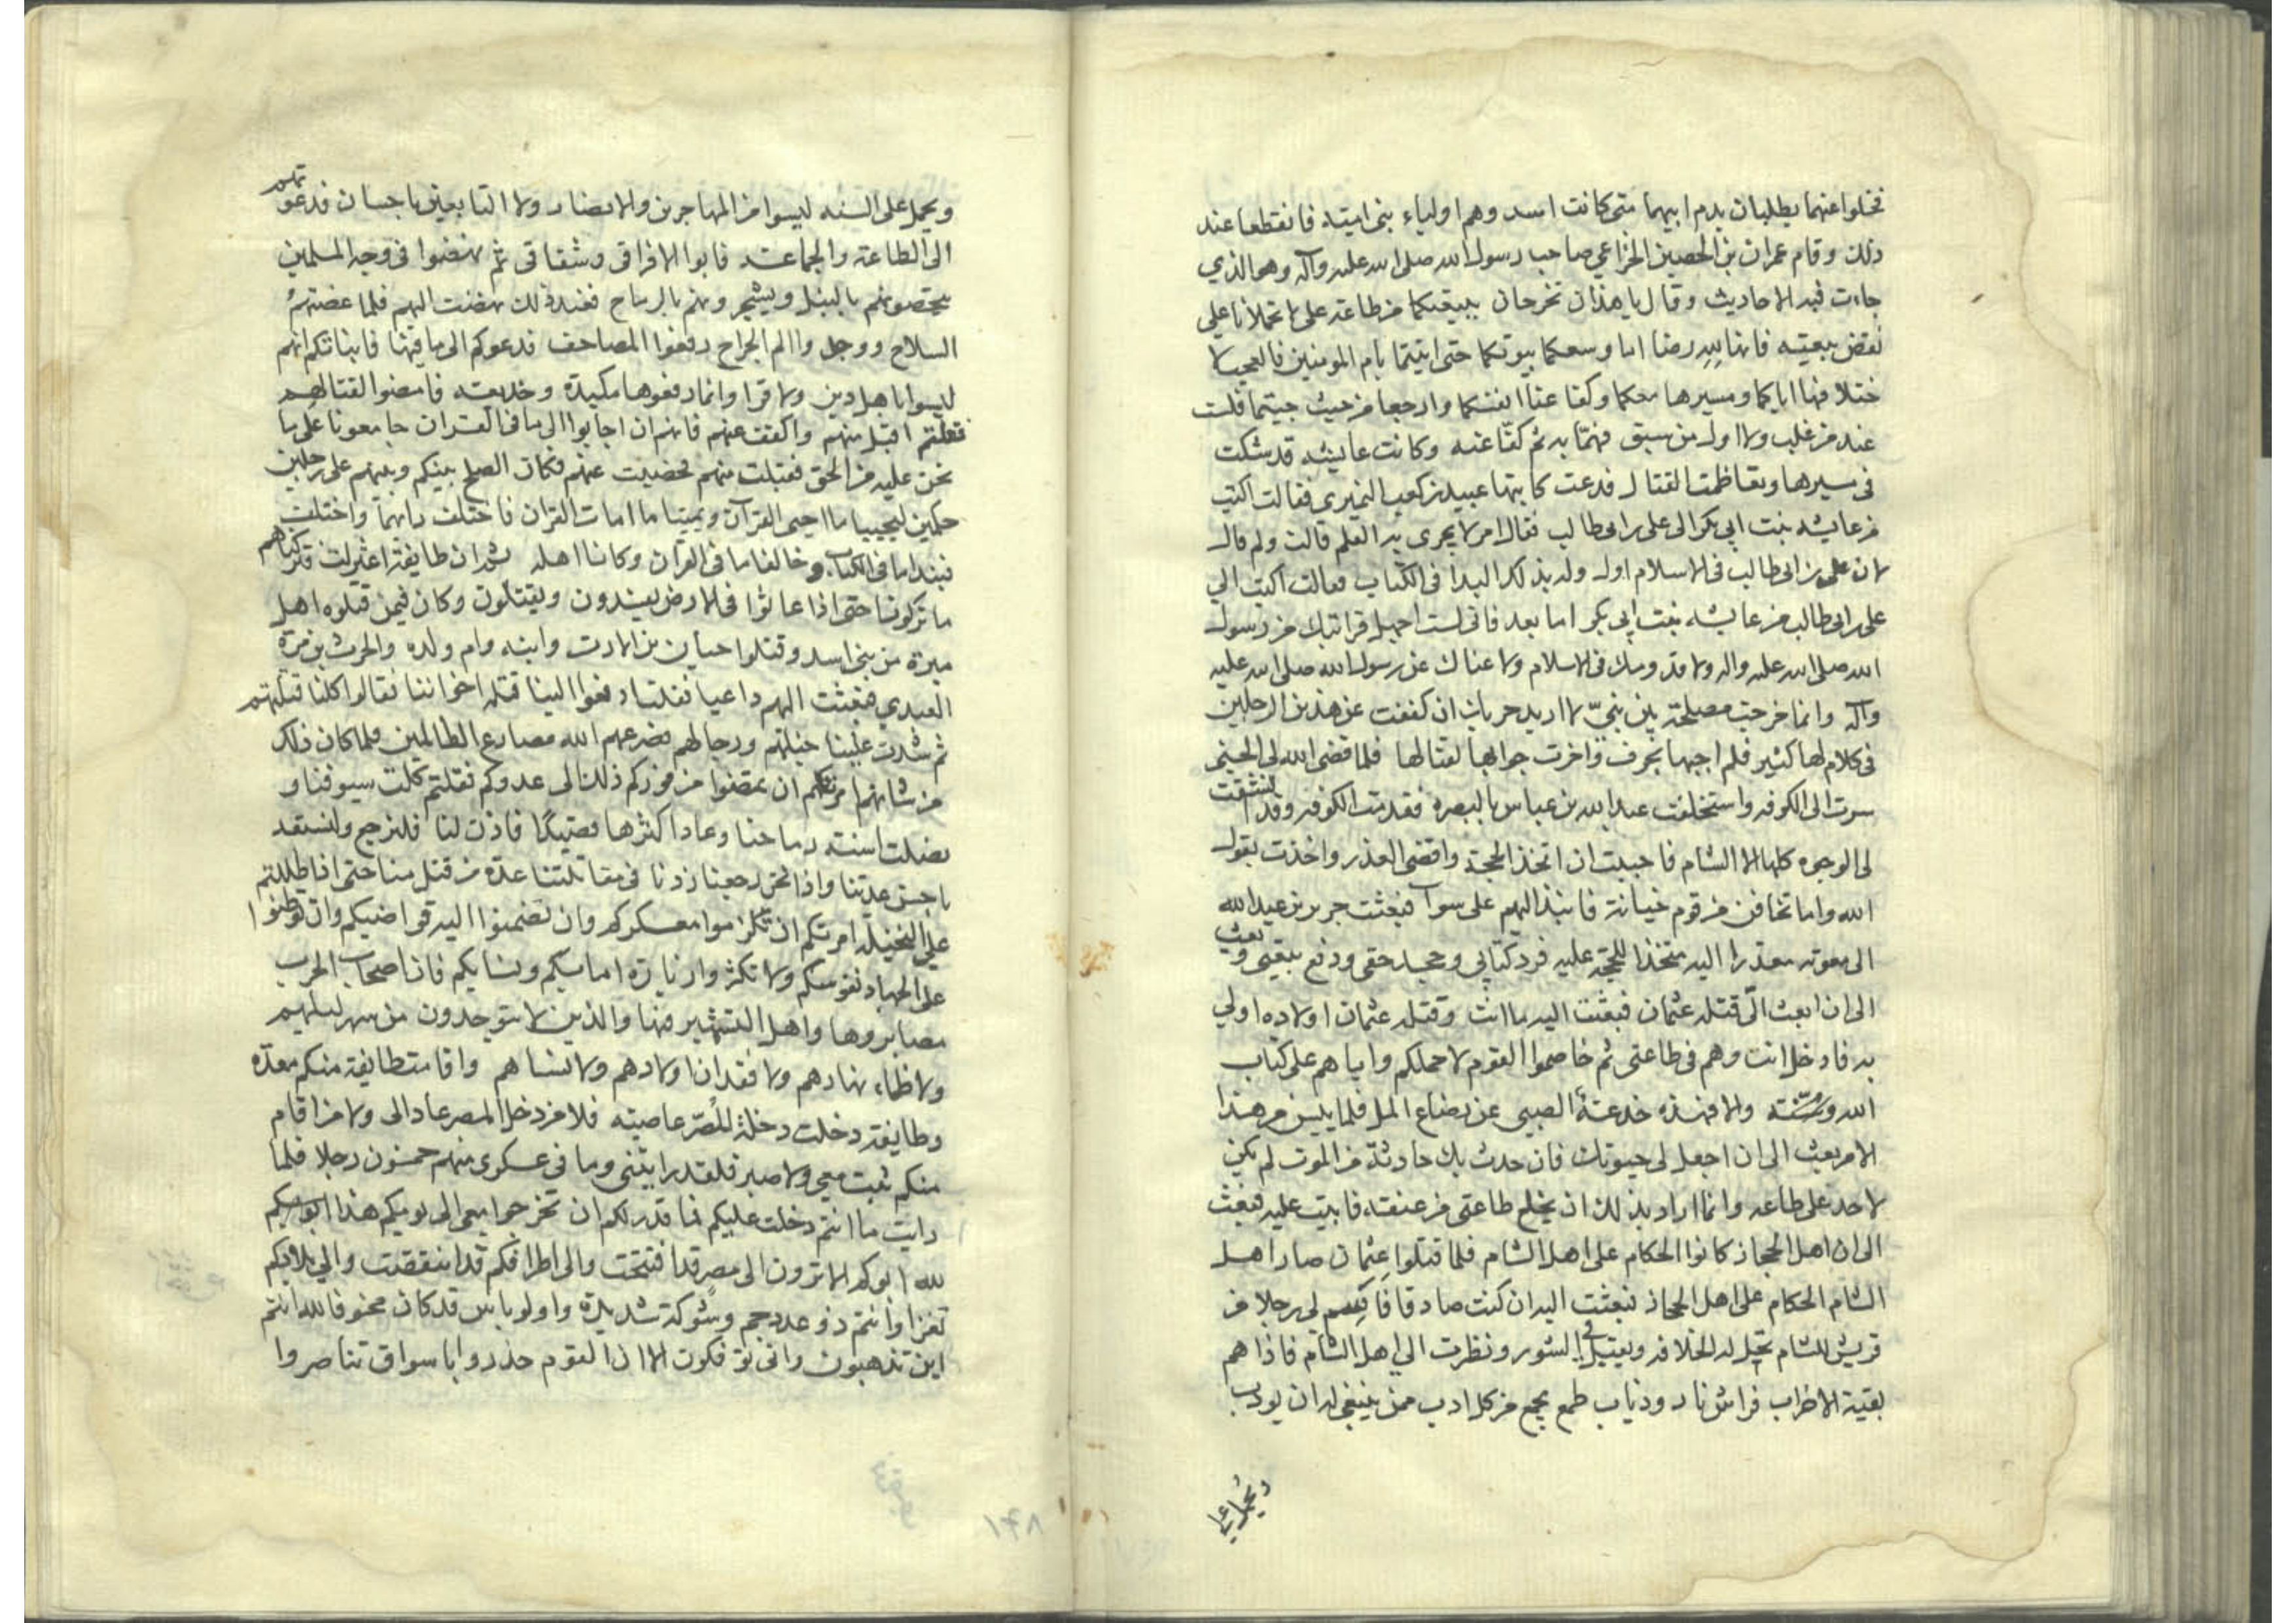 فخلوا عنهما يطلبان بدم ابيهما متى كانت اسد وهم اولياء بنى اميته فانقطعا عند
ذلك وقام عمران بن الحصين الخزاعي صاحب رسول الله صلى الله عليه وآله وهو الذي
جاءت فيه الاحاديث وقال يا هذان تخرجان ببيعتكما من طاعة على لا تحملانا علي
نقض بيعته فانها لله رضا اما وسعكما بيوتكما حتى اتيتما بام المومنين فالعجب لا
ختلافها اياكما ومسيرها معكما وكفا عنا انفسكما وارجعا من حيث جيتما فلسنا
عند من غلب ولا اول من سبق فهما به ثم كفا عنه وكانت عايشه قد شكت
فى مسيرها وتعاظمت القتال فدعت كاتبها عبيد بن كعب النميرى فقالت اكتب
من عايشه بنت ابى بكر الى على بن ابى طالب فقال امر لا يجرى به القلم قالت ولم قال
لان على بن ابى طالب فى الاسلام اول وله بذلك البدا فى الكتاب فقالت اكتب الي
على بن ابى طالب من عايشه بنت ابى بكر اما بعد فانى لست اجهل قرابتك من رسول
الله صلى الله عليه واله ولا قدومك فى الاسلام ولا عناك عن رسول الله صلى الله عليه
وآله وانما خرجت مصلحة بين بنيّ لا اريد حربك ان كففت عن هذين الرجلين
فى كلام لها كثير فلم اجبها بحرف واخرت جوابها لقتالها فلما قضى الله لى الحسنى
سرت الى الكوفه واستخلفت عبد الله بن عباس بالبصره فقدمت الكوفه وقد اتسقت
لى الوجوه كلها الا الشام فاحببت ان اتخذ الحجة واقضى العذر واخذت بقول
الله واما تخافن من قوم خيانة فانبذ اليهم على سوآ فبعثت جرير بن عبد الله
الى معويه معذرا اليه متخذا للحجة عليه فرد كتابى وجحد حقى ودفع بيعتى وبعث
الى ان ابعث الّى قتله عثمان فبعثت اليه ما انت وقتله عثمان اولاده اولي
به فادخل انت وهم فى طاعتى ثم خاصموا القوم لاحملكم واياهم على كتاب
الله وسنته والا فهذه خدعة الصبى عن رضاع الملى فلما يئس من هذا
الامر بعث الى ان اجعل لى حيوتك فان حدث بك حادثة من الموت لم يكن
لاحد على طاعه وانما اراد بذلك ان يخلع طاعتى من عنقه فابيت عليه فبعث
الى ان اهل الحجاز كانوا الحكام على اهل الشام فلما قتلوا عثمان صار اهل
الشام الحكام على اهل الحجاز فبعثت اليه ان كنت صادقا فاسم لى رجلا من
قريش الشام تحل له الخلافه ويقبل في الشورى ونظرت الي اهل الشام فاذا هم
بقية الاحزاب فراش نار وذباب طمع يجمع من كل ادب ممن ينبغى له ان يودب
ويحمل على
ويحمل على السنه ليسوا من المهاجرين والانصار ولا التابعين باحسان فدعوتهم
الى الطاعة والجماعة فابوا الا فراقى وشقاقى ثم نهضوا فى وجه المسلمين
ينضحونهم بالنبل ويشجرونهم بالرماح فعند ذلك نهضت اليهم فلما عضتهم
السلاح ووجدوا الم الجراح رفعوا المصاحف فدعوكم الى ما فيها فانباتكم انهم
ليسوا باهل دين ولا قرا وانما رفعوها مكيدة وخديعة فامضوا لقتالهم
فقلتم اقبل منهم واكفف عنهم فانهم ان اجابوا الى ما فى القران جامعونا على ما
نحن عليه من الحق فقبلت منهم كففت عنهم فكان الصلح بينكم وبينهم على رجلين
حكمين ليحييا ما احيى القرآن ويميتا ما امات القران فاختلف رايهما واختلف
فنبذا ما فى الكتاب وخالفا ما فى القران وكانا اهله ثم ان طايفة اعتزلت فتركناهم
ما تركونا حتى اذا عاثوا فى الارض يفسدون ويقتلون وكان فيمن قتلوه اهل
ميرة من بنى اسد وقتلوا حبان بن الارت وابنه وام ولده والحرث بن مرة
العبدي فبعثت اليهم داعيا فقلت ادفعوا الينا قتله اخواننا فقالوا كلنا قتلهم
ثم شدت علينا خيلهم ورجالهم فصرعهم الله مصارع الظالمين فلما كان ذلك
من شانهم امرتكم ان تمضوا من فوركم ذلك الى عدوكم فقلتم كلت سيوفنا و
نصلت اسنة رماحنا وعاد اكثرها قصيدا فاذن لنا فلنرجع ولنستعد
باحسن عدتنا واذا نحن رجعنا زدنا فى مقاتلتنا عدة من قتل منا حتى اذا ظللتم
على النخيله امرتكم ان تلزموا معسكركم وان تضموا اليه قواضيكم وان توطنوا
على الجهاد نفوسكم ولا تكثروا زيارة ابنايكم ونسايكم فان اصحاب الحرب
مصابروها واهل التشمير فيها والذين لا يتوجدون من سهر ليلهم
ولا ظماء نهارهم ولا فقدان اولادهم ولا نساهم واقامت طايفة منكم معدة
وطايفة دخلت المصر عاصيه فلا من دخل المصر عاد الى ولا من اقام
منكم ثبت معي ولا صبر فلقد رايتنى وما فى عسكرى منهم خمسون رجلا فلما
رايت ما انتم دخلت عليكم فما قدر لكم ان تخرجوا معى الى يومكم هذا
لله ابوكم الا ترون الى مصر قد افتتحت والى اطرافكم قد انتقصت والي بلادكم
تغزا وانتم ذو عدد جم وشوكة شديدة واولو باس قد كان مخوفا لله انتم
اين تذهبون وانى توفكون الا ان القوم جدوا وتاسوا وتناصروا
١٣٨